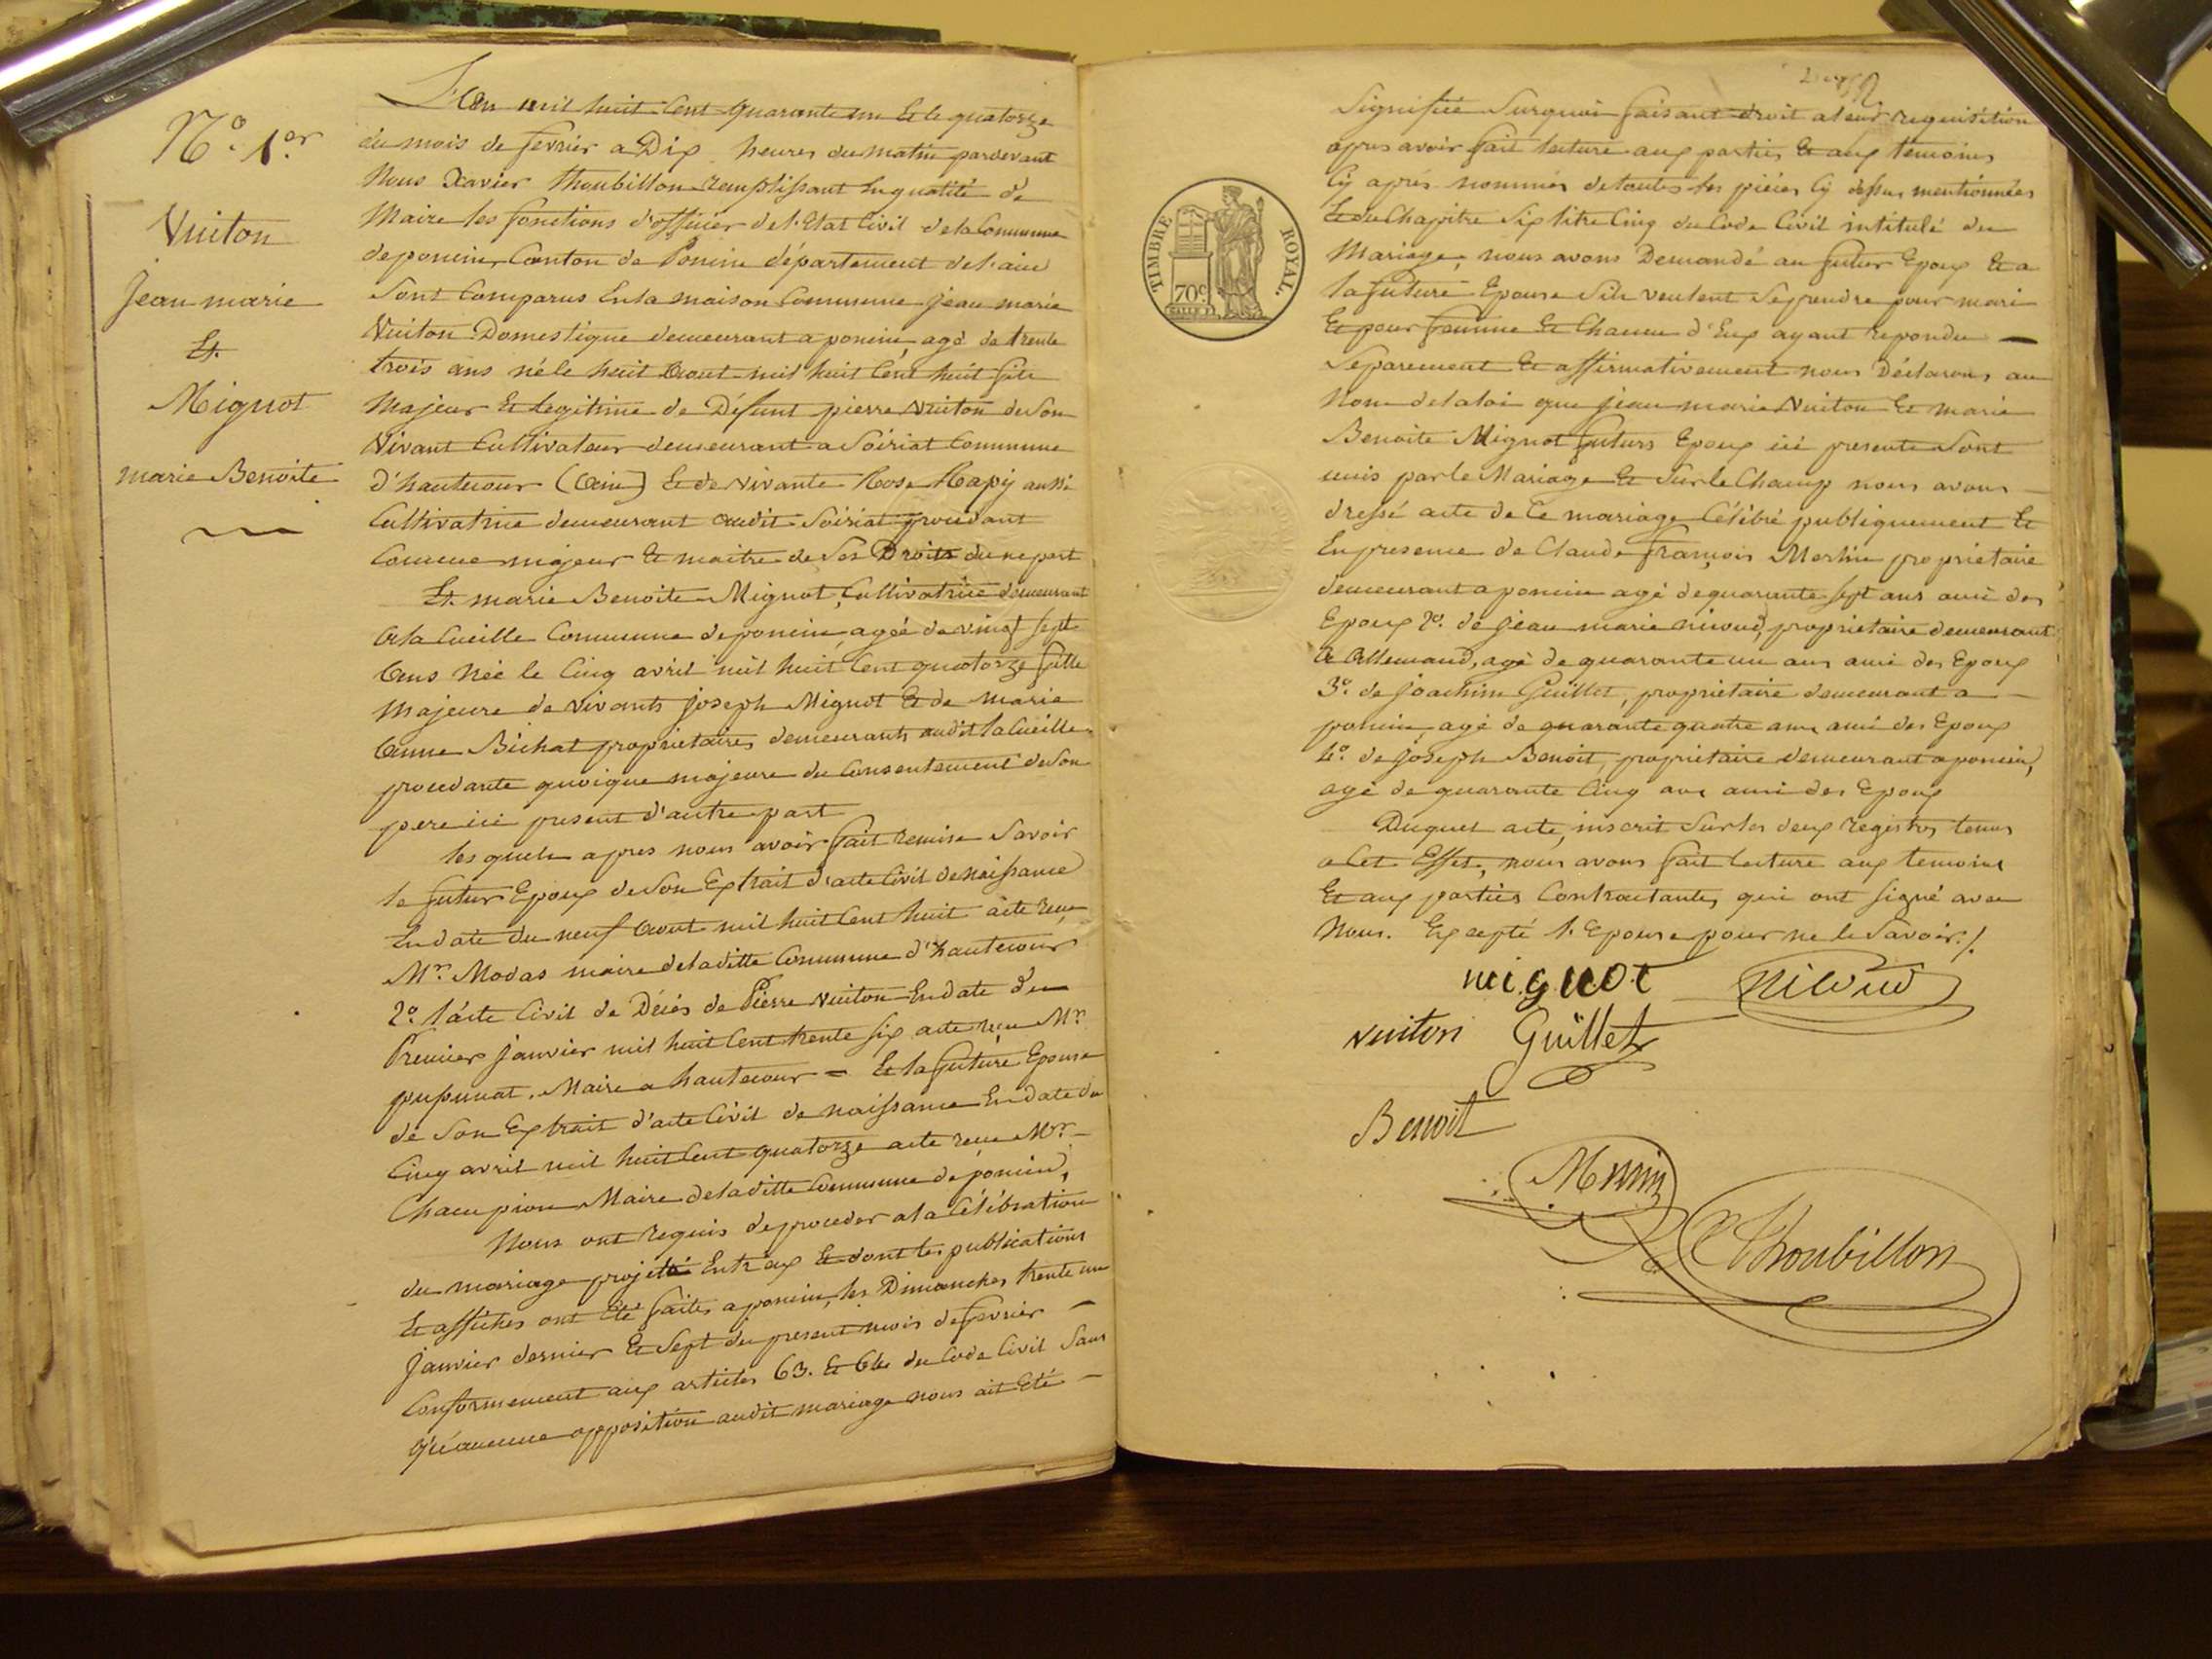 N.º 1.er
Vuiton
Jean marie
Et.
Mignot
marie Benoite
L'an mil huit Cent quarante un Et le quatorze
du mois de fevrier a Dix heures du matin pardevant
Nous Xavier Thoubillon Remplissant En qualité de
Maire les fonctions d'officier de l'Etat Civil de la Commune
de poncin, Canton de Poncin département de l'ain
Sont Comparus En la maison Commune jean marie
Vuiton Domestique demeurant a poncin, agé de trente
trois ans né le huit aout mil huit Cent huit fils
Majeur Et legitime de Défunt pierre Vuiton de Son
Vivant Cultivateur demeurant a Soiriat Commune
d'hautecour (Ain) Et de vivante Rose Rapy aussi
Cultivatrice demeurant audit Soiriat procedant
Comme majeur Et maitre de Ses Droits d'une part
Et. marie Benoite Mignot, Cultivatrice demeurant
a la Cueille Commune de poncin, agée de vingt sept
ans née le Cinq avril mil huit Cent quatorze fille
majeure de vivants joseph Mignot Et de Marie
anne Bichat proprietaires demeurants audit la Cueille
procedante quoique majeure du Consentement de Son
pere ici present d'autre part
les quels apres nous avoir fait remise Savoir
le futur Epoux de Son Extrait d'acte Civil de naissance
En date du neuf aout mil huit Cent huit acte reçu
Mr. Modas maire de la ditte Commune d'hautecour
2.º l'acte Civil de Décés de Pierre Vuiton En date du
Premier janvier mil huit Cent trente six acte reçu Mr.
Maire a hautecour = Et la future Epouse
de Son Extrait d'acte Civil de naissance En date du
Cinq avril mil huit Cent quatorze acte reçu Mr.
Champion Maire de la ditte Commune de poncin,
Nous ont requis de proceder a la Célébration
du mariage projetté Entr'eux Et dont les publications
Et affiches ont été faites a poncin, les Dimanches trente un
janvier dernier Et Sept du present mois de fevrier —
Conformement aux articles 63. Et 64 du Code Civil Sans
qu'aucune opposition audit mariage nous ait Eté —
Signifiée Surquoi faisant droit a leur requisition
apres avoir fait lecture aux parties Et aux temoins
Cy aprés nommés de toutes les piéces Cy dessus mentionnées
Et du Chapitre Six titre Cinq du Code Civil intitulé du
Mariage, nous avons Demandé au futur Epoux Et a
la future Epouse S'ils veulent Se prendre pour mari
Et pour femme Et Chacun d'Eux ayant repondu —
Séparement Et affirmativement nous Déclarons au
Nom de la loi que jean marie Vuiton Et marie
Benoite Mignot futurs Epoux ici presents Sont
unis par le Mariage Et Sur le Champ nous avons —
dressé acte de Ce mariage Célébré publiquement Et
En presence de Claude françois Merlin proprietaire
demeurant a poncin agé de quarante sept ans ami des
Epoux 2.º de jean marie nicoud, proprietaire demeurant
a Allemand, agé de quarante un ans ami des Epoux
3.º de joachim Guillet, proprietaire demeurant a —
poncin, agé de quarante quatre ans ami des Epoux
4.º de joseph Benoit, proprietaire demeurant a poncin,
agé de quarante Cinq ans ami des Epoux
Duquel acte, inscrit Sur les deux registres tenus
a Cet Effet, nous avons fait lecture aux temoins
Et aux parties Contractantes, qui ont signé avec
Nous. Excepté l'Epouse pour ne le Savoir./.
mignot nicoud
vuiton Guillet
Benoit
Merlin
Thoubillon
TIMBRE ROYAL.
70c